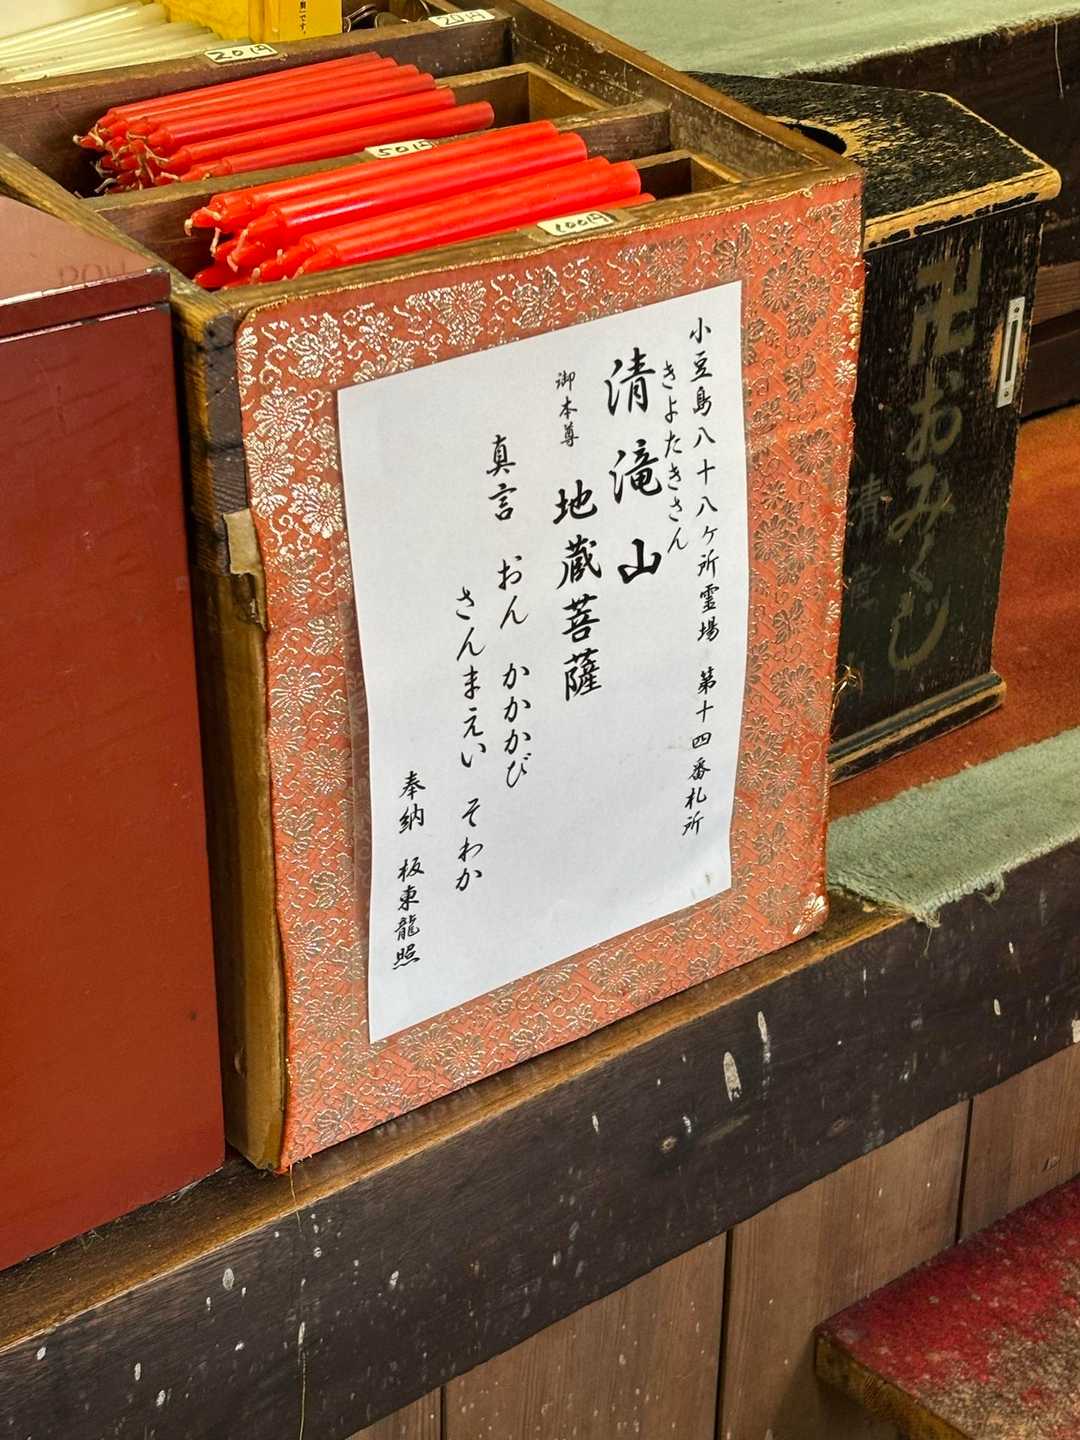 小豆島八十八ヶ所霊場 第十四番札所
きよたきさん
清滝山
御本尊 地蔵菩薩
真言 おん かかかび
さんまえい そわか
奉納 板東龍照
20円
20円
50円
100円
卍おみくじ